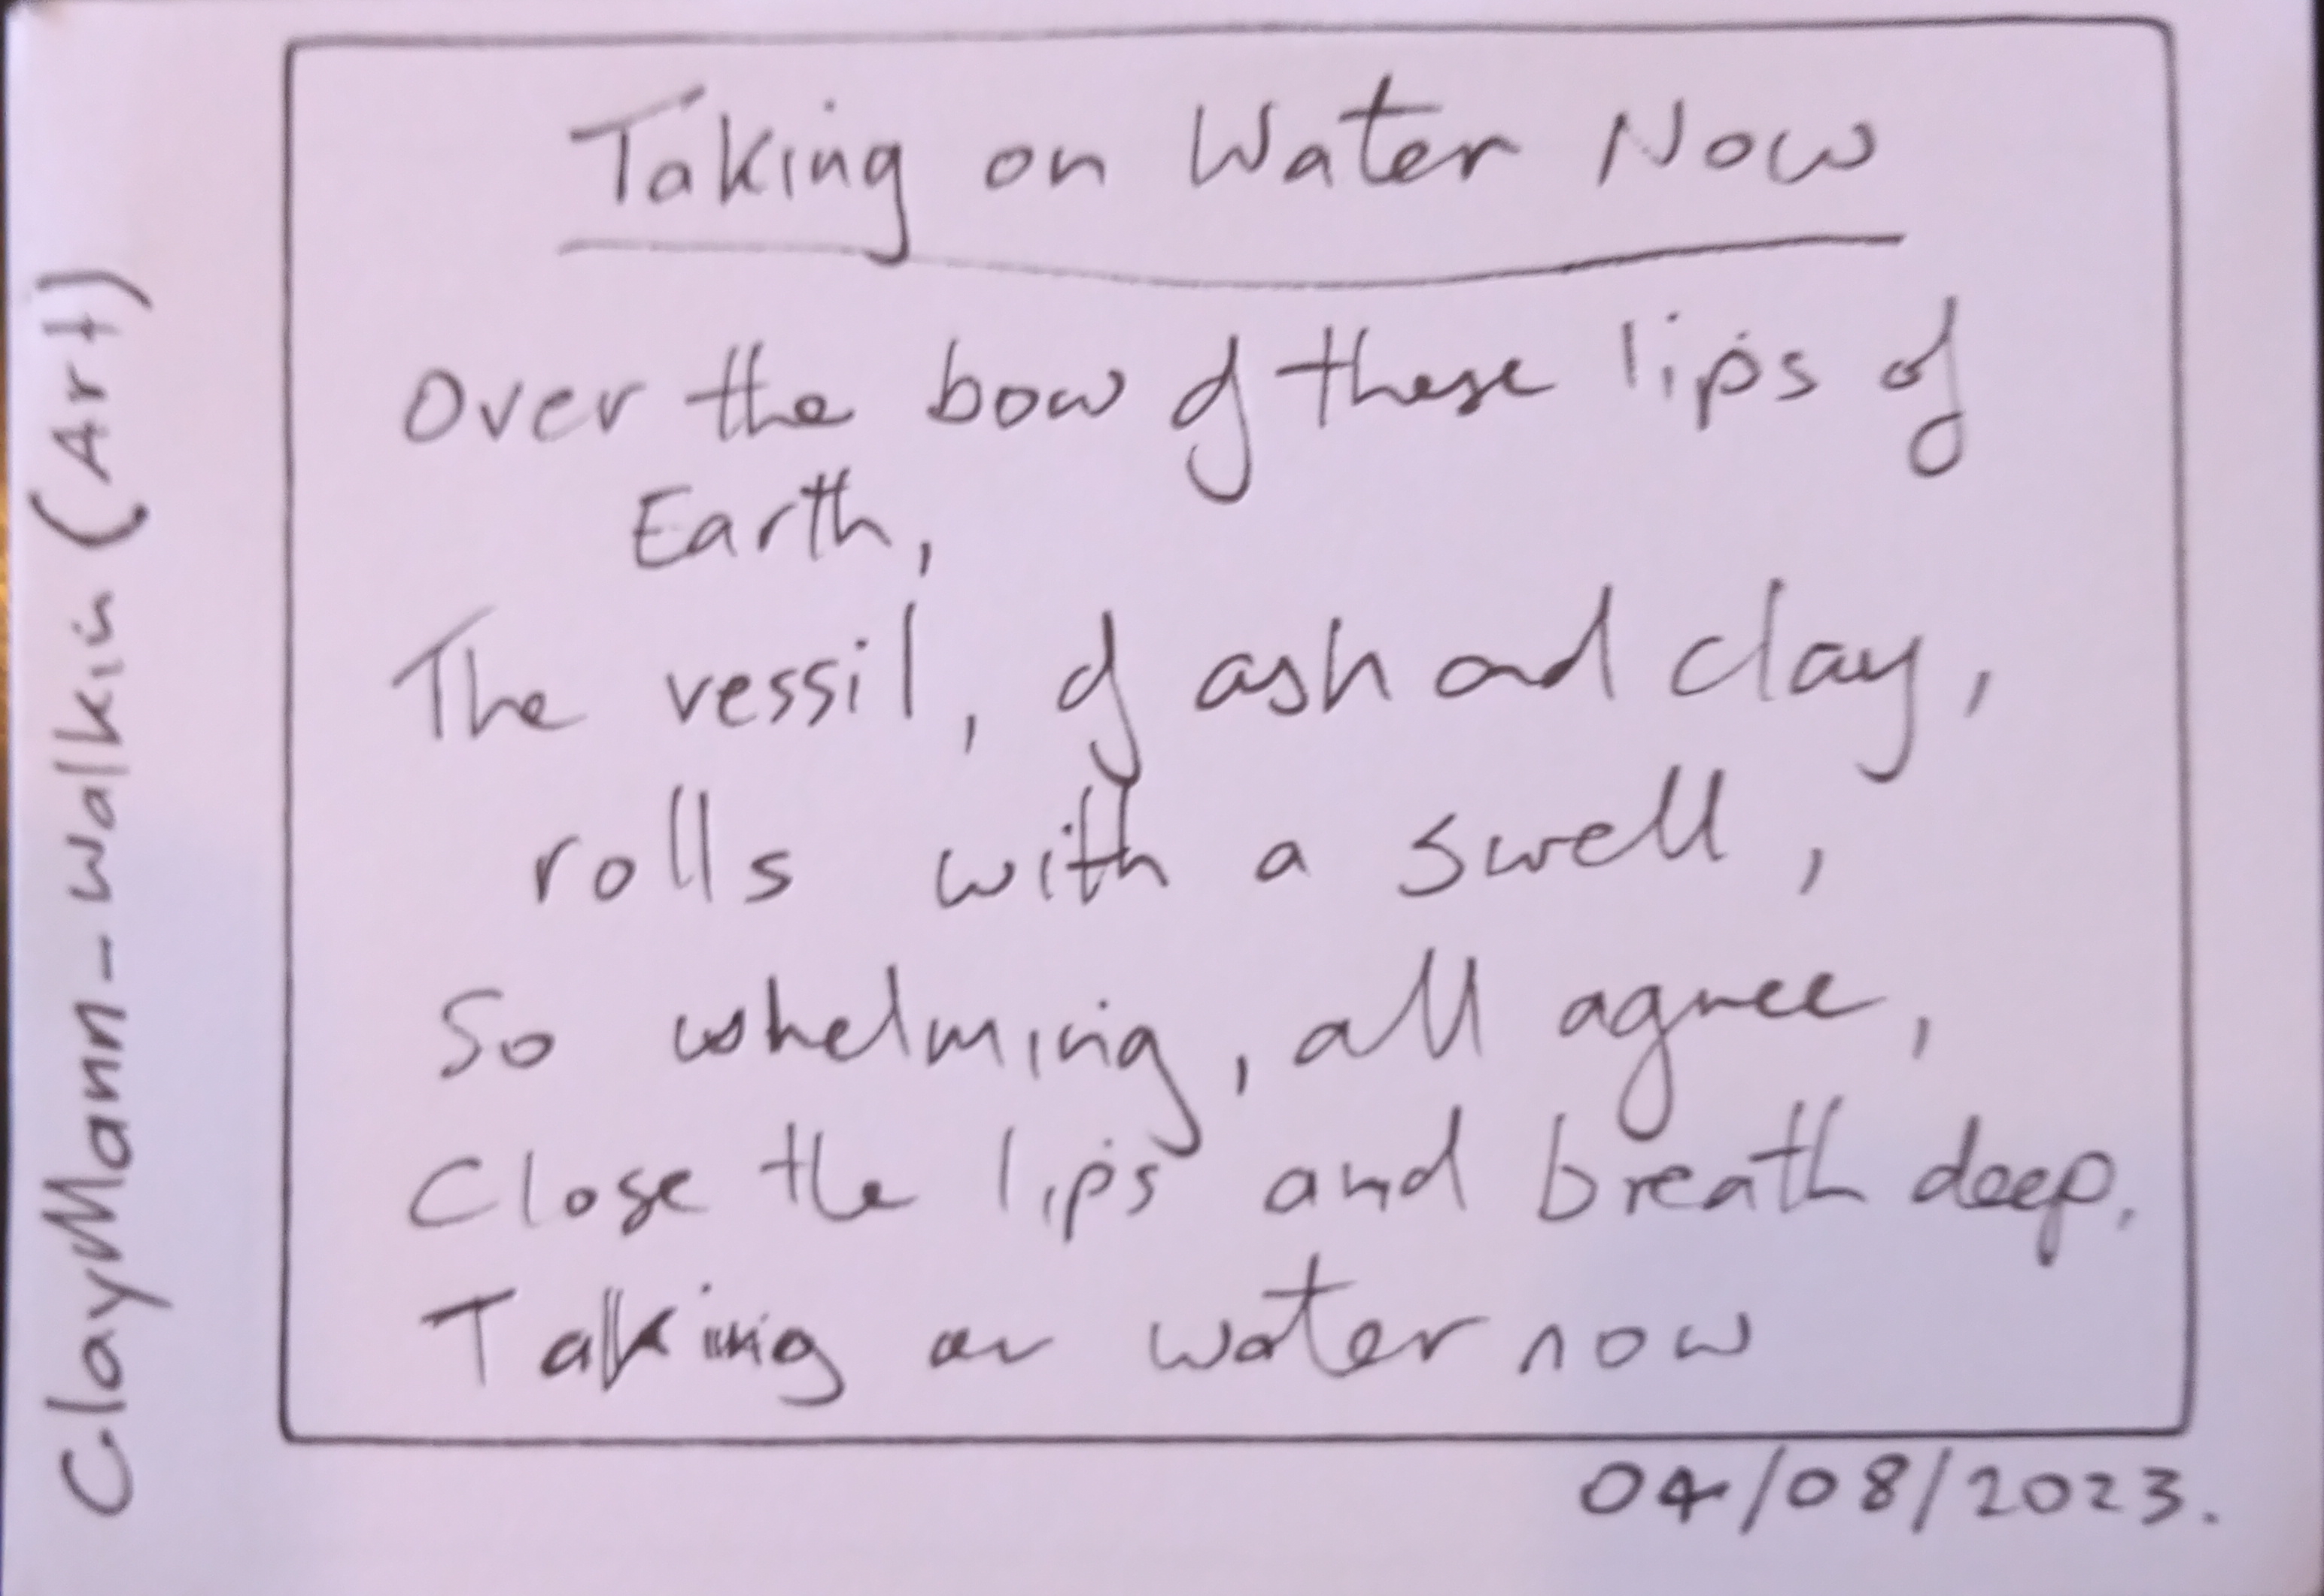 Taking on Water Now
Over the bow of these lips of
Earth,
The vessil, of ash and clay,
rolls with a swell,
So whelming, all agree,
Close the lips and breath deep.
Taking on water now
04/08/2023.
ClayMann-walkin (Art)